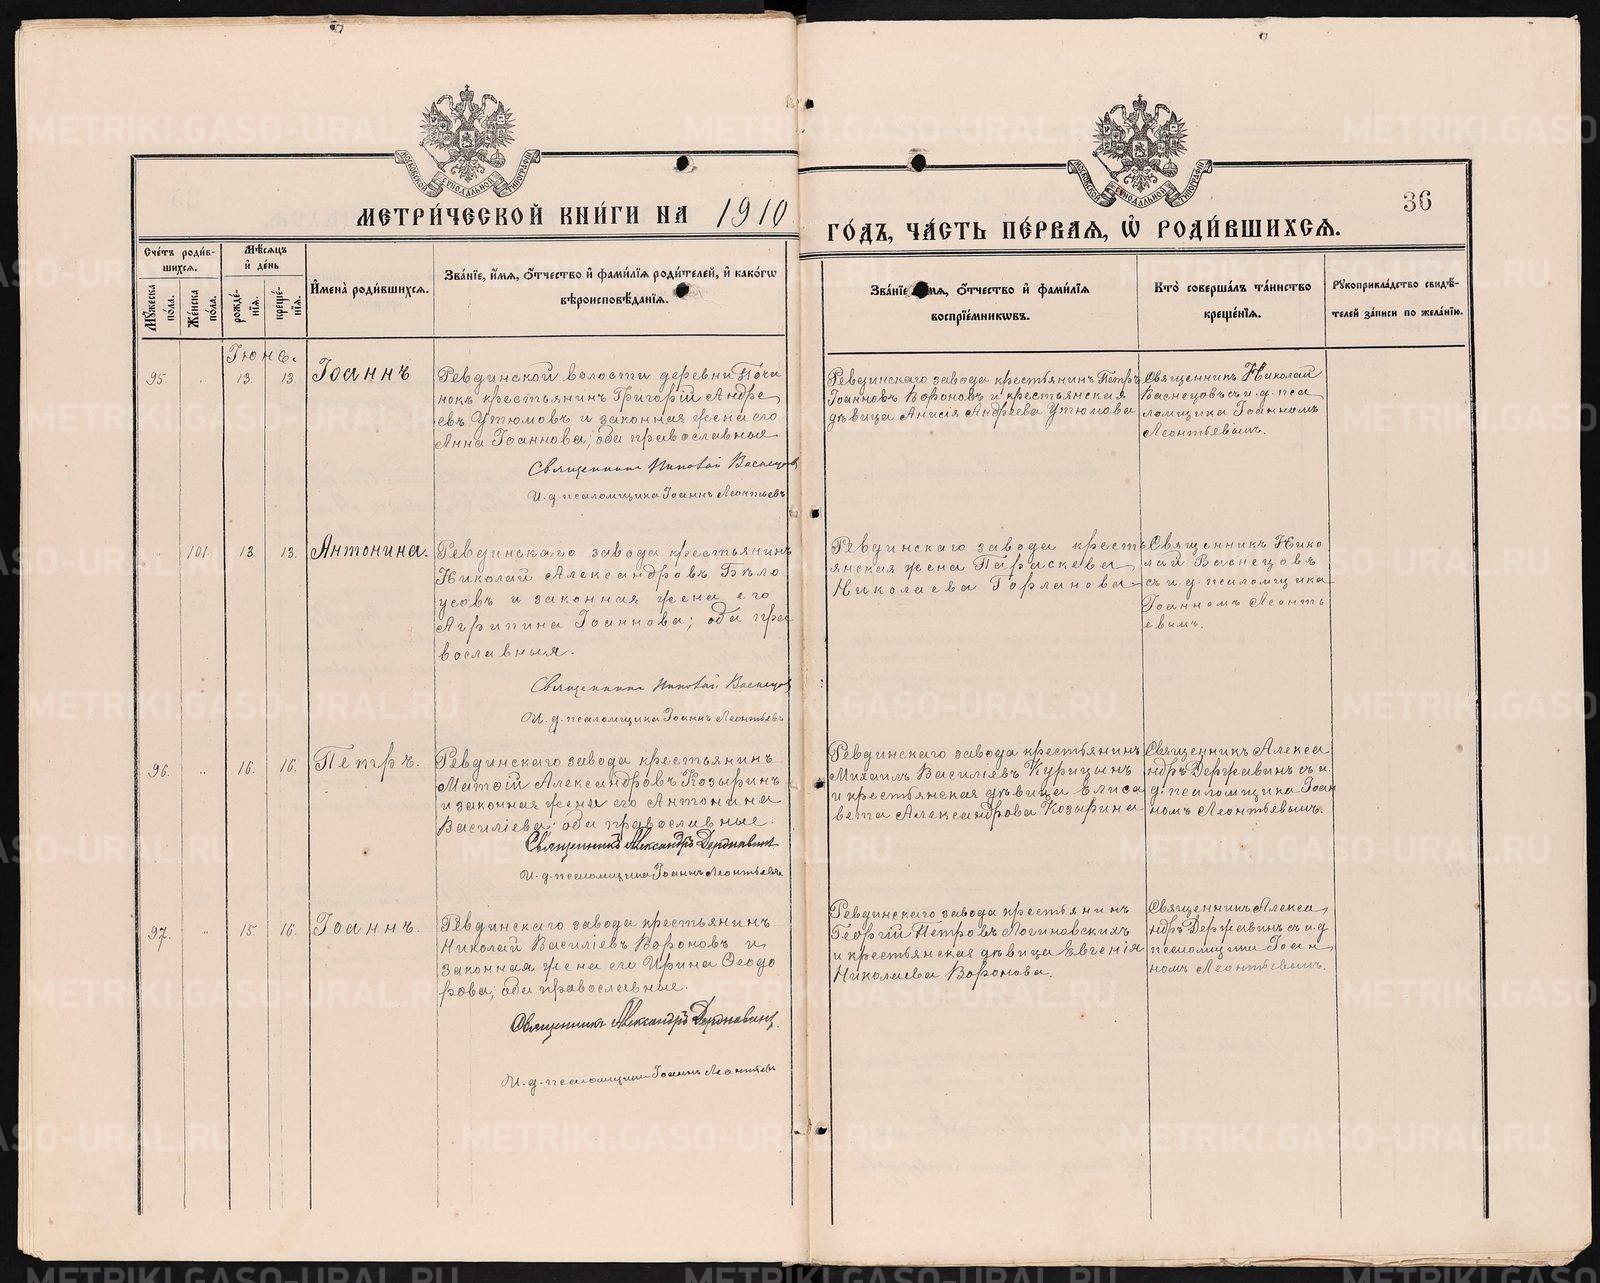 МЕТРИ́ЧЕСКОЙ КНИ́ГИ НА 1910
ГО́ДЪ, ЧА́СТЬ ПЕ́РВАЯ, Ѡ РОДИ́ВШИХСЯ.
36
МОСКОВСКОЙ СѴНОДАЛЬНОЙ ТИПОГРАФІИ
МОСКОВСКОЙ СѴНОДАЛЬНОЙ ТИПОГРАФІИ
Сче́тъ роди́в-
шихся.
Му́жеска по́ла.
Же́нска по́ла.
Мѣ́сяцъ
и́ де́нь
рожде́-
нїя.
креще́-
нїя.
И҆мена̀ роди́вшихся.
Зва́нїе, и҆́мя, ѻ҆́тчество и҆ фами́лїя роди́телей, и҆ како́гѡ
вѣроисповѣ́данїя.
Зва́нїе, и҆́мя, ѻ҆́тчество и҆ фами́лїя
воспрїе́мникѡвъ.
Кто̀ соверша́лъ та́инство
креще́нїя.
Рукоприкла́дство свидѣ́-
телей за́писи по жела́нїю.
Іюнь.
95.
13.
13.
Іоаннъ
Ревдинской волости деревни Почи
нокъ крестьянинъ Григорій Андре
евъ Утюмовъ и законная жена его
Анна Іоаннова; оба православные
Священникъ Николай Васнецовъ
И. д. псаломщика Іоаннъ Леонтьевъ
Ревдинскаго завода крестьянинъ Петръ
Іоанновъ Вороновъ и крестьянская
дѣвица Анисія Андреева Утюмова
Священникъ Николай
Васнецовъ съ и. д. пса
ломщика Іоанномъ
Леонтьевымъ.
101.
13.
13.
Антонина.
Ревдинскаго завода крестьянинъ
Николай Александровъ Бѣло
усовъ и законная жена его
Агрипина Іоаннова; оба пра
вославныя.
Священникъ Николай Васнецовъ
И. д. псаломщика Іоаннъ Леонтьевъ
Ревдинскаго завода кресть
янская жена Параскева
Николаева Горланова
Священникъ Нико
лай Васнецовъ
съ и. д. псаломщика
Іоанномъ Леонть
евымъ.
96.
16.
16.
Петръ.
Ревдинскаго завода крестьянинъ
Матѳій Александровъ Козыринъ
и законная жена его Антонина
Василіева; оба православные.
Священникъ Александръ Державинъ
И. д. псаломщика Іоаннъ Леонтьевъ
Ревдинскаго завода крестьянинъ
Михаилъ Василіевъ Курицынъ
и крестьянская дѣвица Елиса
вета Александрова Козырина
Священникъ Алекса
ндръ Державинъ съ и.
д. псаломщика Іоан
номъ Леонтьевымъ.
97.
15.
16.
Іоаннъ.
Ревдинскаго завода крестьянинъ
Николай Василіевъ Вороновъ и
законная жена его Ирина Ѳеодо
рова; оба православные.
Священникъ Александръ Державинъ
И. д. псаломщика Іоаннъ Леонтьевъ
Ревдинскаго завода крестьянинъ
Георгій Петровъ Логиновскихъ
и крестьянская дѣвица Евгенія
Николаева Воронова.
Священникъ Алекса
ндръ Державинъ съ и. д
псаломщика Іоан
номъ Леонтьевымъ.
METRIKI.GASO-URAL.RU